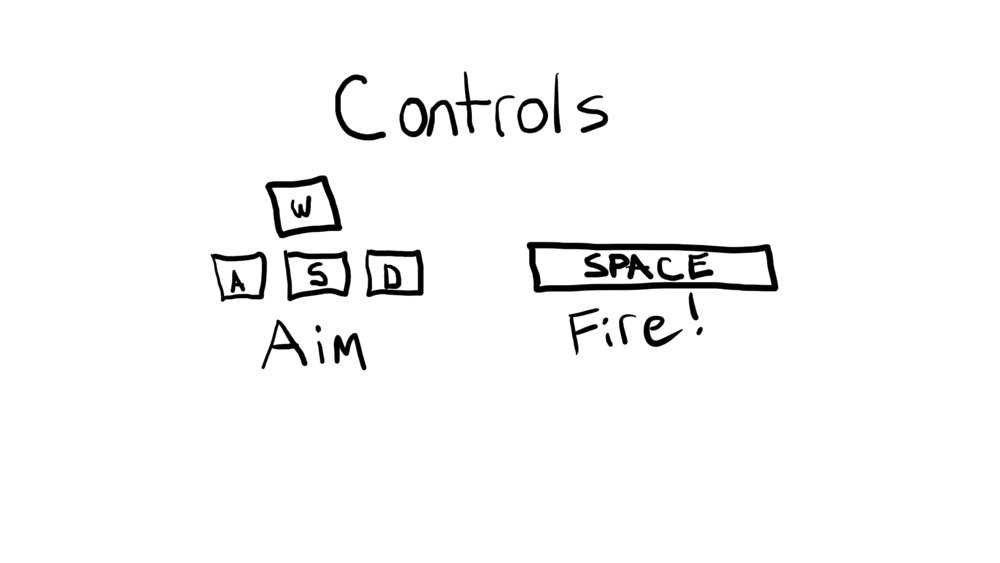 Controls
W
A S D
Aim
SPACE
Fire!